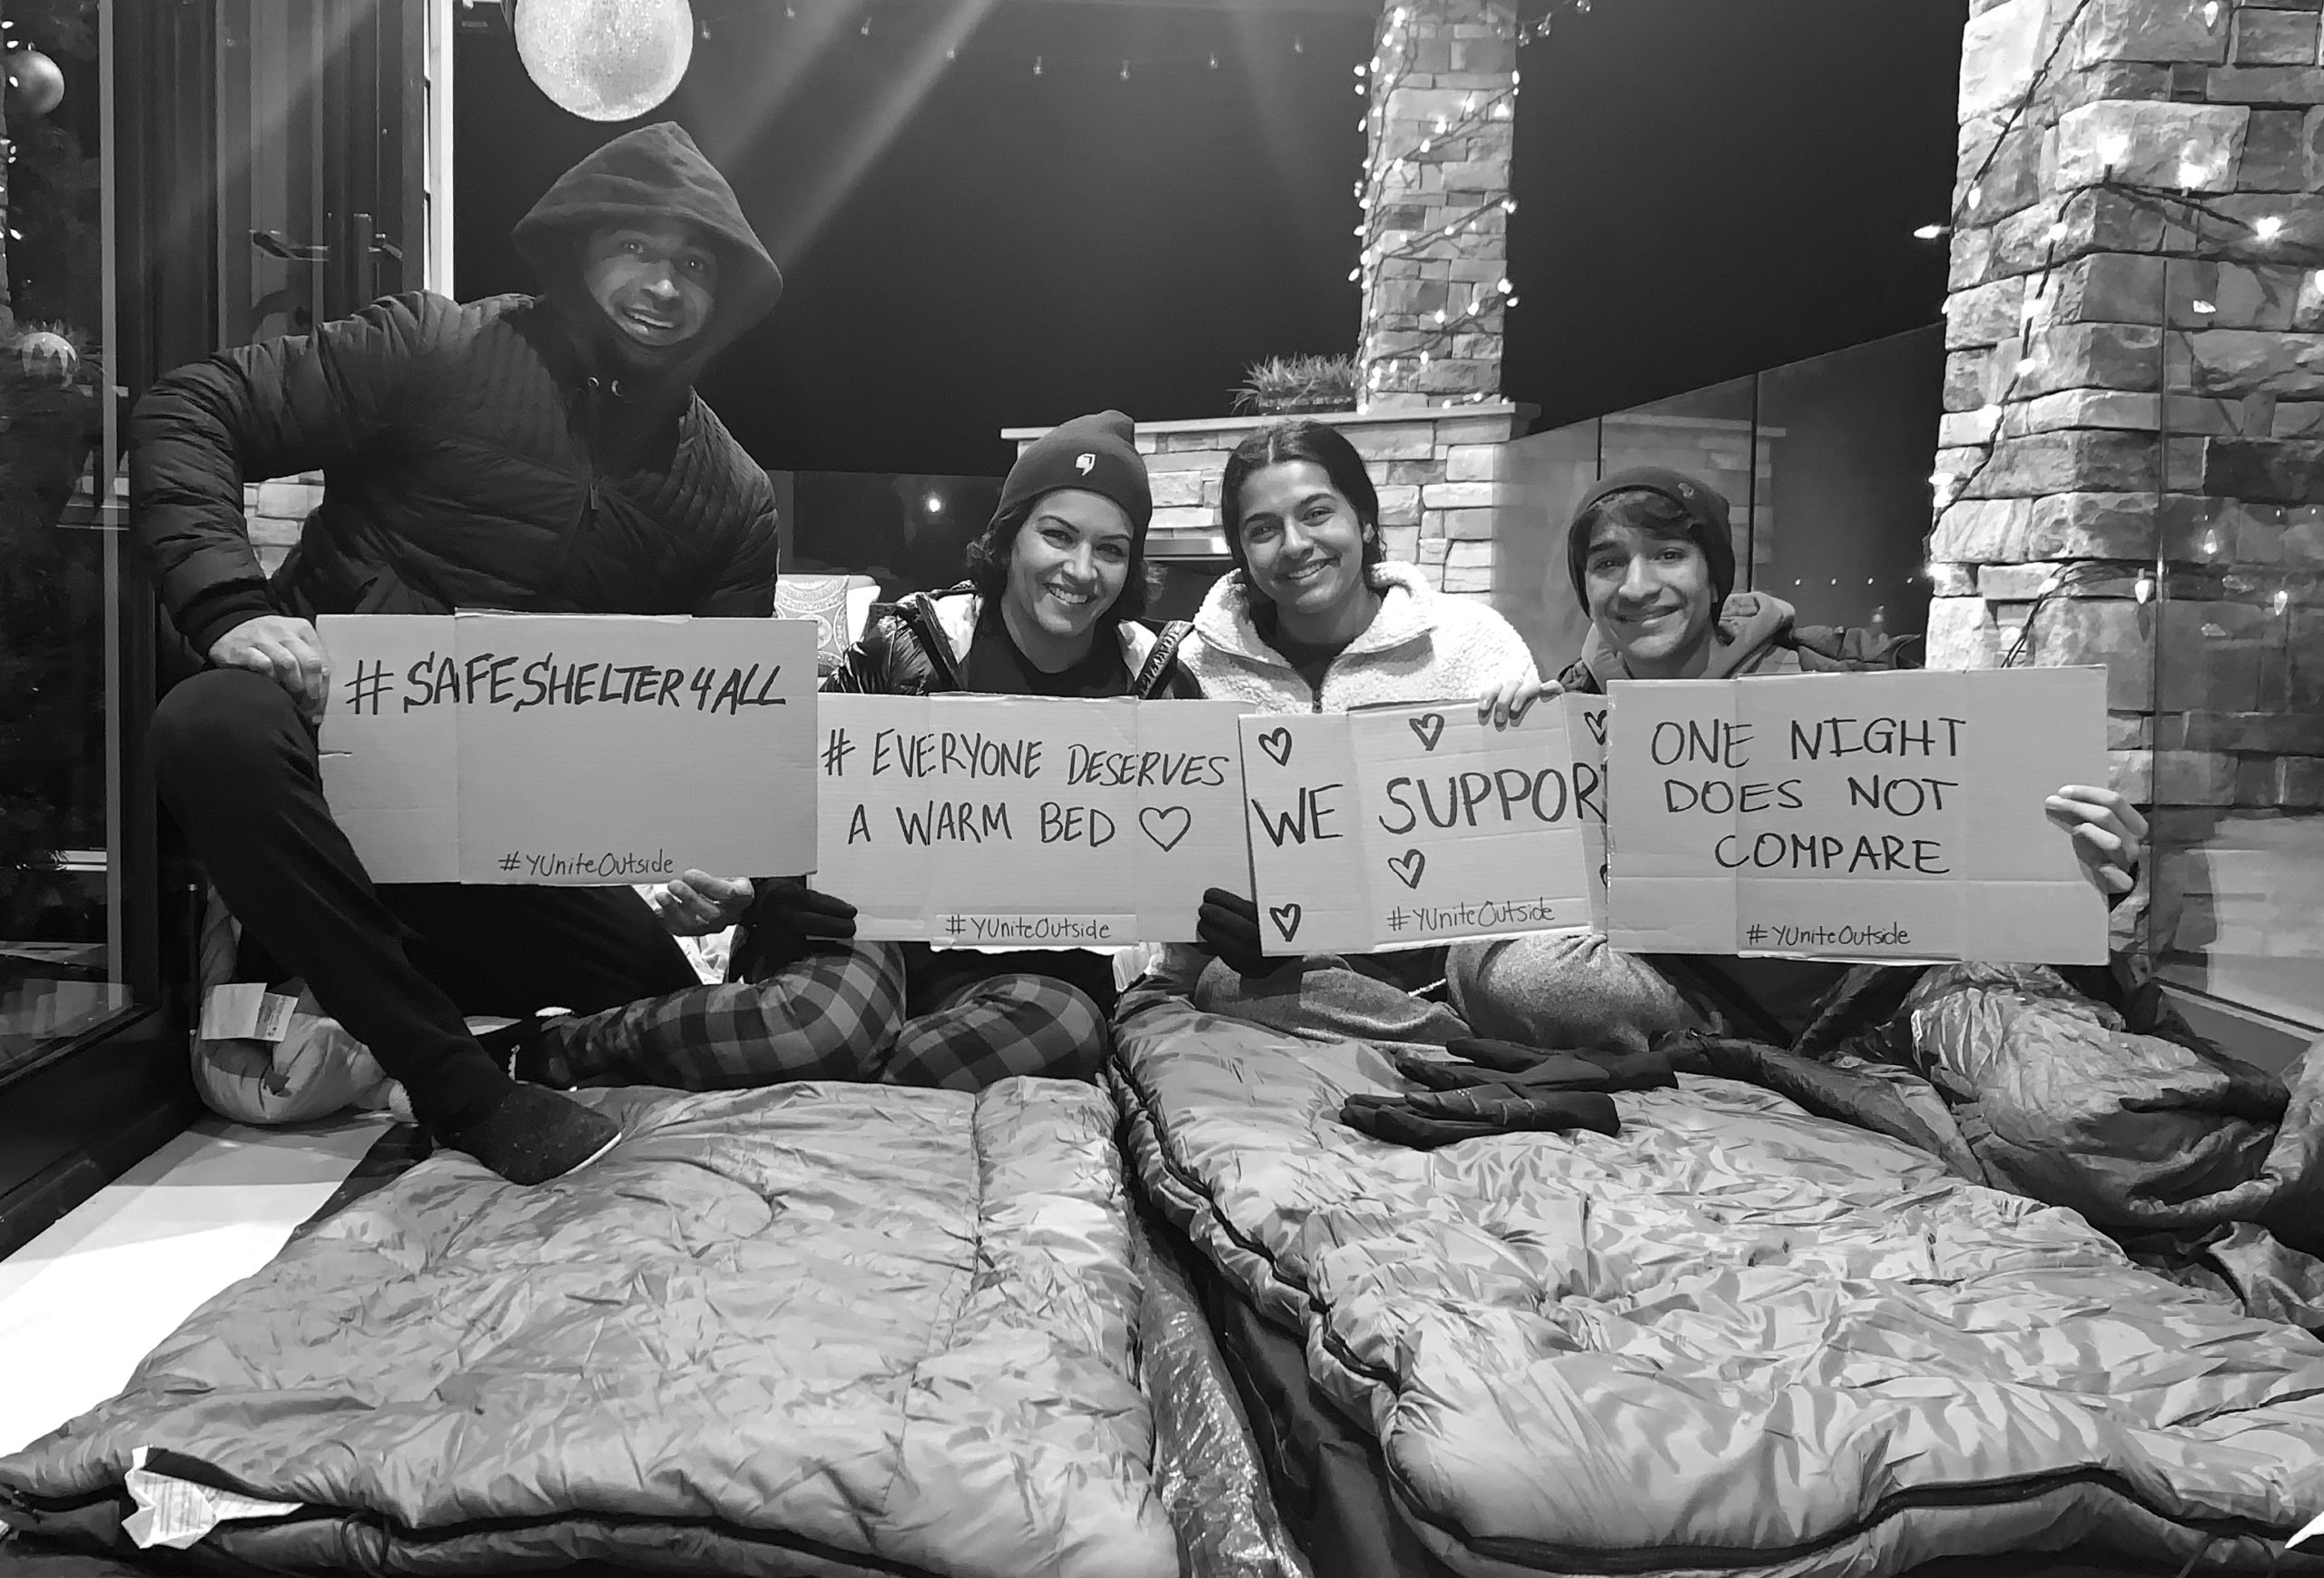 #SAFESHELTER4ALL
#YUniteOutside
# EVERYONE DESERVES
A WARM BED
#YUniteOutside
WE SUPPOR
#YUniteOutside
ONE NIGHT
DOES NOT
COMPARE
#YUniteOutside